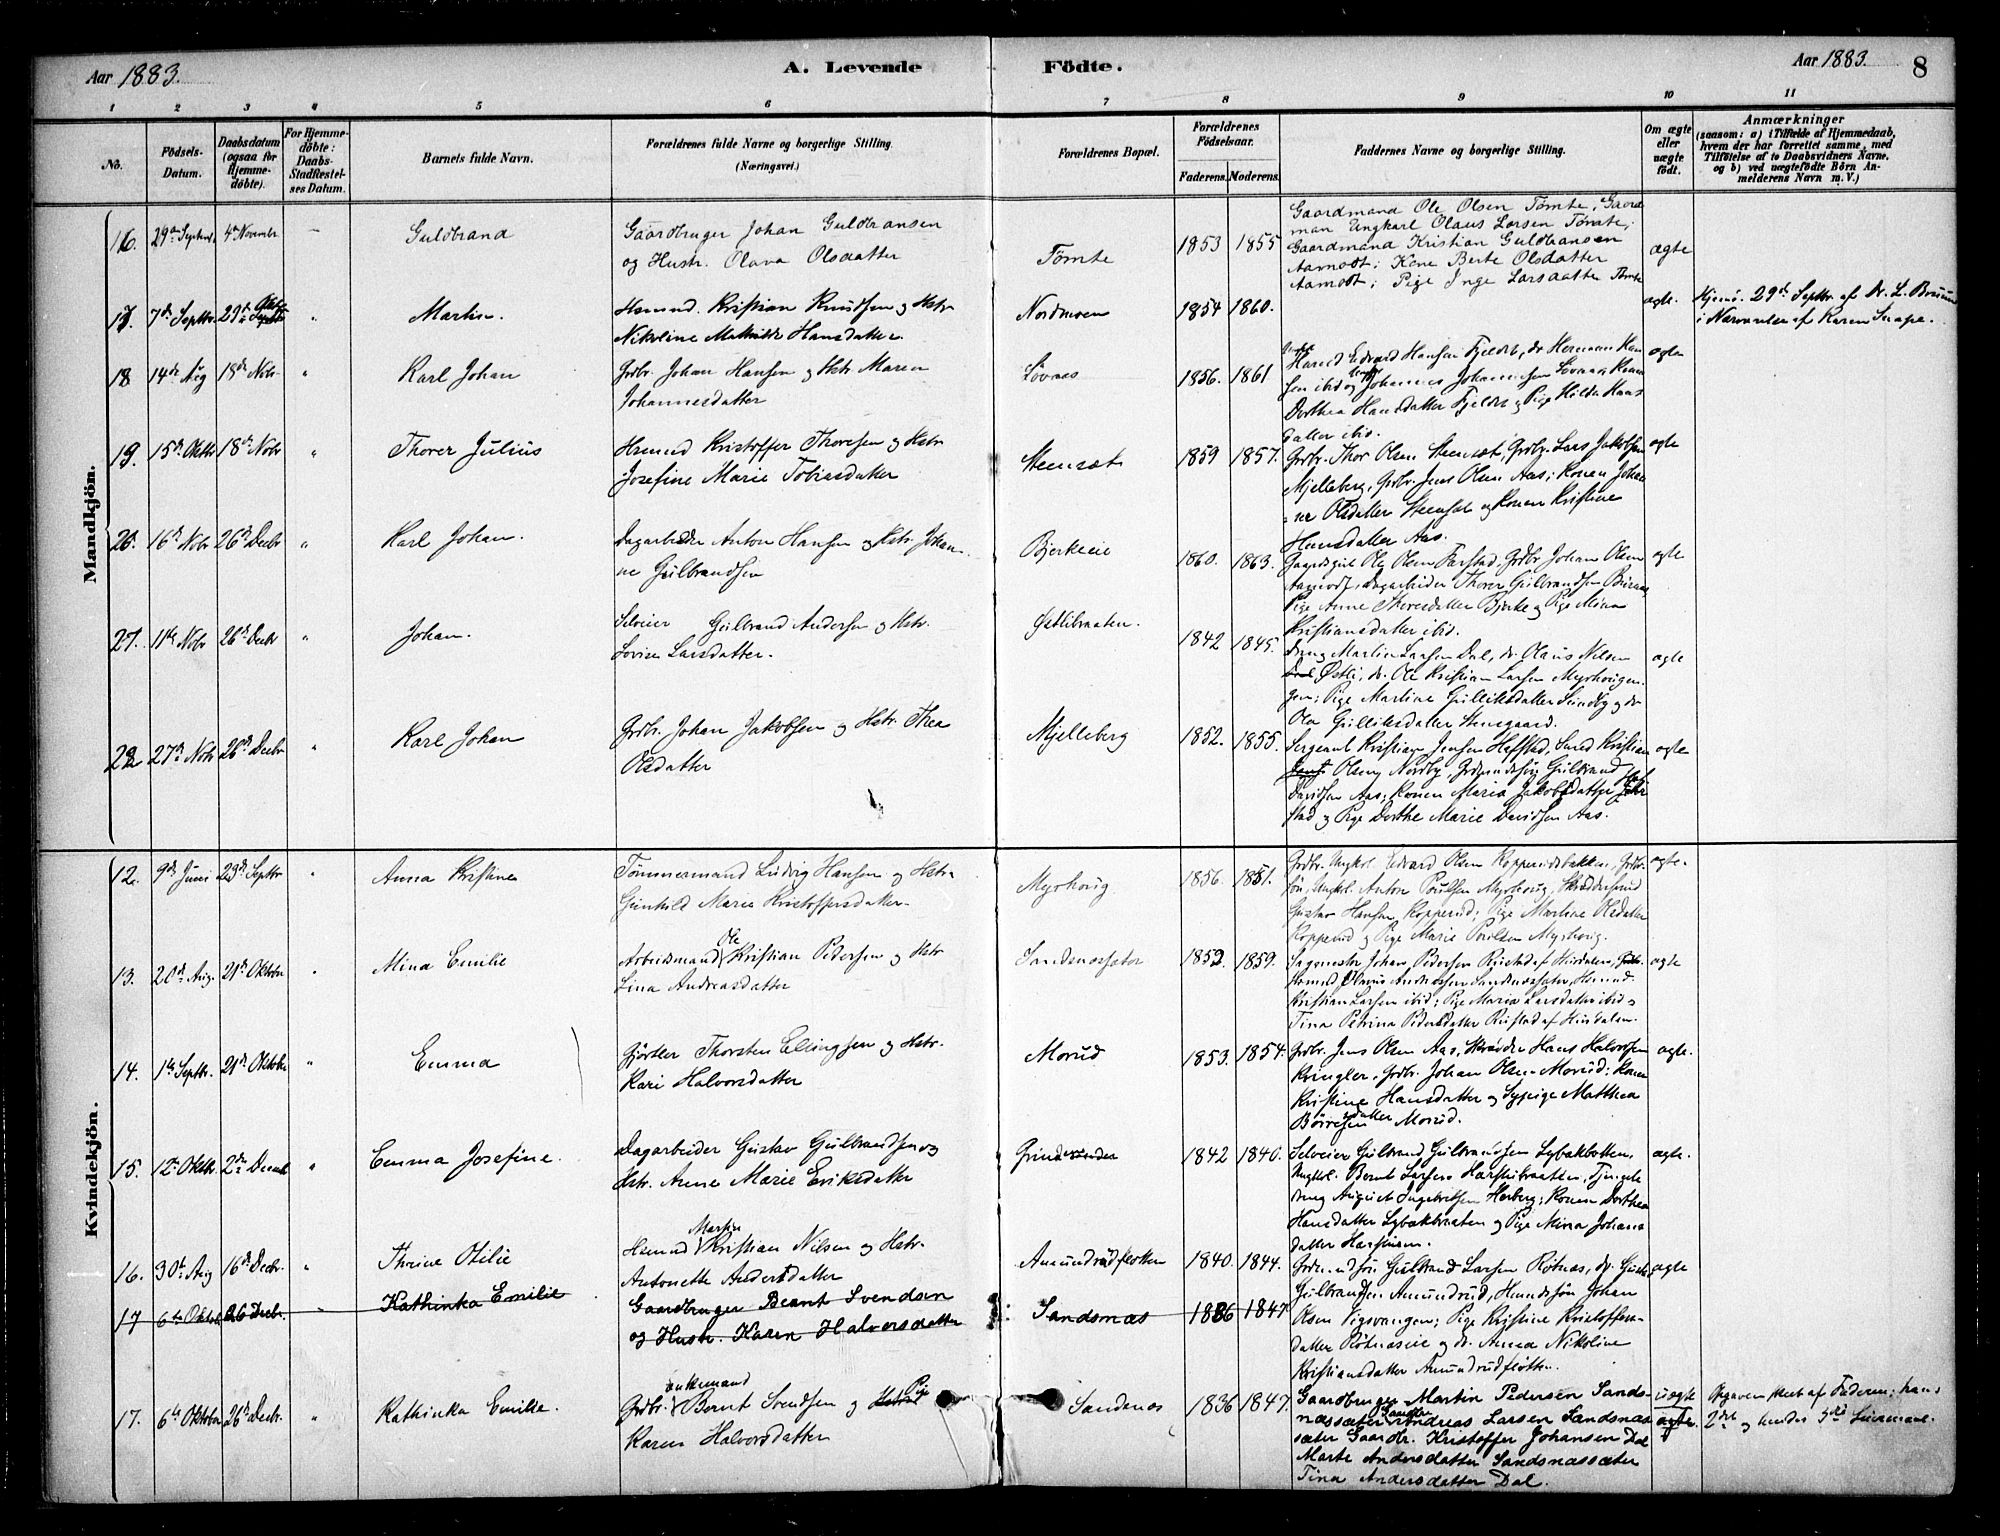 Aar 1883.
A. Levende Födte.
Aar 1883. 8
1 2 3 4 5 6 7 8 9 10 11
No.
Födsels-Datum.
Daabsdatum (ogsaa for Hjemmedöbte).
For Hjemmedöbte: Daabs-Stadfæstelses Datum.
Barnets fulde Navn.
Forældrenes fulde Navne og borgerlige Stilling. (Næringsvei.)
Forældrenes Bopæl.
Forældrenes Födselsaar.
Faderens. Moderens.
Faddernes Navne og borgerlige Stilling.
Om ægte eller uægte födt.
Anmærkninger
(saasom: a) i Tilfælde af Hjemmedaab, hvem der har forrettet samme, med Tilföielse af to Daabsvidners Navne, og b) ved uægtefödte Börn Anmelderens Navn m. V.)
Mandkjön.
16. 29de Septbr. 4de Novembr — Guldbrand
Gaardbruger Johan Guldbransen
og Hustr. Olava Olsdatter
Tömte 1853 1855
Gaardmand Ole Olsen Tömte, Gaard
man Ungkarl Olaus Larsen Tömte;
Gaardmand Kristian Guldbransen
Aamodt; Kone Berte Olsdatter
Aamodt; Pige Inge Larsdatter Tömte
ægte
17. 7de Septbr. 29de Oktbr " Martin.
Hsmnd. Kristian Knudsen og Hstr
Nikoline Mathilde Hansdatter.
Nordmoen 1854 1860. ægte.
Hjemd. 29de Septbr. af Dr. L.
i Nærværelse af Karen
18 14de Aug 18de Nobr " Karl Johan
Grdbr. Johan Hansen og Hstr Maren
Johannesdatter
Lövnæs 1856. 1861
Edvard Hansen Fjeldst, dr Herman Han
sen ibid og Johannes Johannesen Lövnæs; Konen
Dorthea Hansdatter Fjeldst og Pige Hilda Hans
datter ibid.
ægte
19. 15de Oktbr 18de Nobr " Thorer Julius
Hsmnd Kristoffer Thoresen og Hstr
Josefine Marie Tobiasdatter
Steensæt 1859 1857.
Grdbr. Thor Olsen Steensæt, Grdbr. Lars Jakobsen
Mjelleberg, Grdbr. Jens Olsen Aas; Konen Johan
ne Olsdatter Steensæt og Konen Kristine
Hansdatter Aas.
ægte
20. 16de Nobr 26de Decbr " Karl Johan.
Dagarbeider Anton Hansen og Hstr. Johan
ne Gulbrandsen
Bjerkeeie 1860. 1863.
Gaardsgut Ole Olsen Farstad, Grdbr Johan Olsen
Aamodt, Dagarbeider Thorer Gulbrandsen
Pige Anne Thoresdatter Bjerke og Pige Mina
Kristiansdatter ibid.
ægte
21. 11te Nobr 26de Decbr " Johan.
Selveier Gulbrand Andersen og Hstr.
Lovise Larsdatter.
Østlibraaten. 1842 1845.
Dreng Martin Larsen Dal, dr. Olaus Nilsen
Østli, dr. Ole Kristian Larsen Myrhovigen
Pige Martine Gulliksdatter Sundby og dr
Ola Gulliksdatter Steensgaard.
ægte
22 27de Nobr 26de Decbr " Karl Johan
Grdbr. Johan Jakobsen og Hstr. Thea
Olsdatter
Mjelleberg 1852. 1855.
Sergeant Kristian Jensen Hofstad, Smed Kristian
Olsen Nordby, Grdmandssön Gulbrand
Davidsen Aas; Konen Maria Jakobsdatter
stad og Pige Dorthe Marie Davidsen Aas.
ægte
Kvindekjön.
12. 9de Juni 23de Septbr " Anna Kristine
Tömmermand Ludvig Hansen og Hstr
Gunhild Marie Kristoffersdatter.
Myrhovig 1856. 1851.
Grdbr. Ungkrl Edvard Olsen Kopperudsbakken, Grdbr.
sön, Ungkrl. Anton Poulsen Myrhovig, Skræddersvend
Gustav Hansen Kopperud; Pige Martine Olsdatter
Kopperud og Pige Marie Poulsen Myrhovig.
ægte.
13. 20de Aug. 21de Oktober " Mina Emilie
Arbeidsmand Ole Kristian Pedersen og Hstr
Lina Andreasdatter
Sandnæssæter 1852. 1859.
Sagmester Johan Pedersen Rustad af Hurdalen,
Olaus Andreassen Sandnæssæter, Hsmnd
Kristian Larsen ibid; Pige Maria Larsdatter ibid
Tina Petrina Pedersdatter Rustad af Hurdalen.
ægte
14. 1te Septbr. 21de Oktober " Emma
Gjörtler Thorsten Ellingsen og Hstr.
Kari Halvorsdatter
Morud 1853. 1854.
Grdbr. Jens Olsen Aas, Skrædder Hans Halvorsen
Kringler, Grdbr. Johan Olsen Morud; Konen
Kristine Hansdatter og Sypige Matthea
Börresdatter Morud.
ægte.
15. 12te Oktbr. 2den Decembr " Emma Josefine.
Dagarbeider Gustav Gulbrandsen og
Hstr. Anne Marie Eriksdatter
1842 1840.
Selveier Gulbrand Gulbrandsen Lybækbraaten,
Ungkrl. Bernt Larsen Harstubraaten, Tjeneste
dreng August Ingebretsen Herberg; Konen Dorthea
Hansdatter Lybækbraaten og Pige Mina Johans
datter
ægte.
16. 30te Aug 16de Decbr. " Thrine Otilie
Hsmnd Martin Kristian Nilsen og Hstr.
Antonette Andersdatter
Amundrudfloten 1840. 1844.
Gulbrand Larsen Rötnæs, dr.
Gulbrandsen Amundrud, Huusmandssön Johan
Olsen Vigsvangen; Pige Kristine Kristoffers
datter Rötnæseie og dr. Anna Nikoline
Kristiansdatter Amundrudfloten.
ægte
17 6te Oktob 26 Decbr. - Kathinka Emilie
Gaardbruger Beant Svendsen
og Hustr. Karen Halversdatter
Sandsnæs 1836 1847
17. 6te Oktober 26de Decbr. " Kathinka Emilie.
Grdbr. enkemand Bernt Svendsen og Hstr. Pige
Karen Halvorsdatter
Sandsnæs 1836 1847.
Gaardbruger Martin Pedersen Sands-
næssæter Gaardbr Andreas Larsen Sandsnæs
sæter Gaardbr. Kristoffer Johansen Dal
Marte Andersdatter Sandsnæssæter
Tina Andersdatter Dal.
uægte
ægte.
Opgaven skeet af Faderen; hans
2det og hendes 3die Leiermaal.